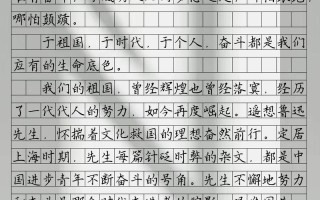 哪怕颠跛。
于祖国，于时代，于个人，奋斗都是我们
应有的生命底色。
我们的祖国，曾经辉煌也曾经落寞，经历
了一代代人的努力，如今再度崛起。遥想鲁迅
先生，怀揣着文化救国的理想奋然前行。定居
上海时期，先生每篇针砭时弊的杂文，都是中
国进步青年不断奋斗的号角。先生不懈地努力